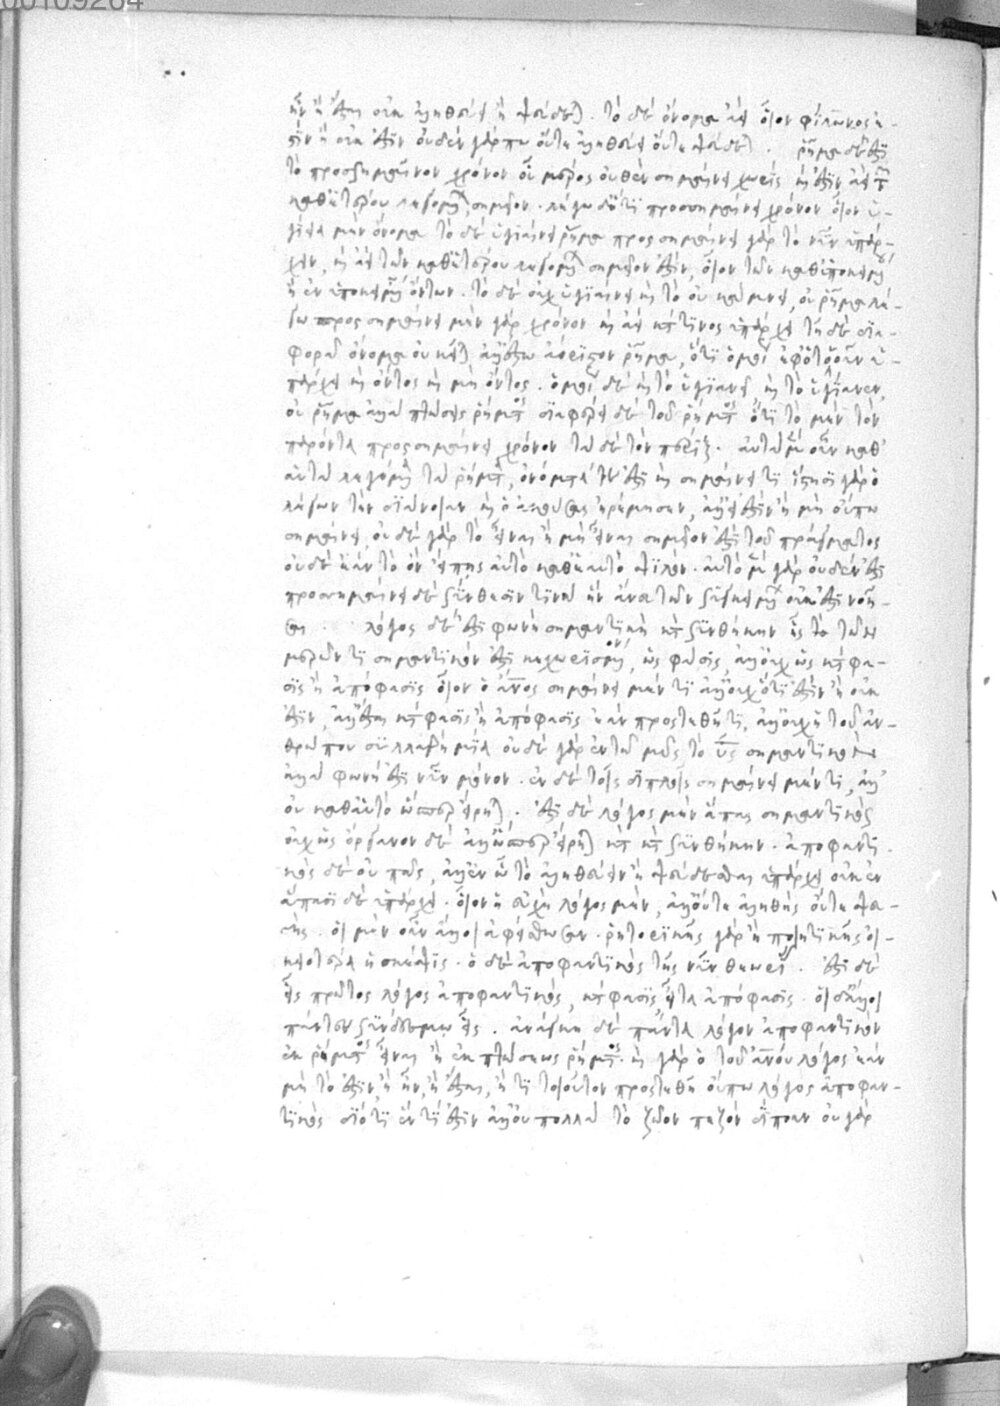 00109264
ἦν ἢ ἔσται οὐκ ἀληθεύει ἢ ψεύδεται. τὸ δὲ ὄνομα ἀεὶ οἷον φίλωνος ἐ-
στὶν ἢ οὐκ ἔστιν οὐδὲν γάρ πω οὔτε ἀληθεύει οὔτε ψεύδεται. ῥῆμα δέ ἐστι
τὸ προσσημαῖνον χρόνον οὗ μέρος οὐθὲν σημαίνει χωρίς καὶ ἔστιν ἀεὶ τῶν
καθ' ἑτέρου λεγομένων σημεῖον. λέγω δ' ὅτι προσσημαίνει χρόνον οἷον ὑ-
γίεια μὲν ὄνομα τὸ δὲ ὑγιαίνει ῥῆμα προσσημαίνει γὰρ τὸ νῦν ὑπάρ-
χειν, καὶ ἀεὶ τῶν καθ' ἑτέρου λεγομένων σημεῖόν ἐστιν, οἷον τῶν καθ' ὑποκειμένου
ἢ ἐν ὑποκειμένῳ ὄντων. τὸ δὲ οὐχ ὑγιαίνει καὶ τὸ οὐ κάμνει, οὐ ῥῆμα λέ-
γω προσσημαίνει μὲν γὰρ χρόνον καὶ ἀεὶ κατά τινος ὑπάρχει τῇ δὲ δια-
φορᾷ ὄνομα οὐ κεῖται ἀλλ' ἔστω ἀόριστον ῥῆμα, ὅτι ὁμοίως ἐφ' ὁτουοῦν ὑ-
πάρχει καὶ ὄντος καὶ μὴ ὄντος. ὁμοίως δὲ καὶ τὸ ὑγιανεῖ καὶ τὸ ὑγίανεν,
οὐ ῥῆμα ἀλλὰ πτῶσις ῥήματος διαφέρει δὲ τοῦ ῥήματος ὅτι τὸ μὲν τὸν
παρόντα προσσημαίνει χρόνον τὰ δὲ τὸν πέριξ. αὐτὰ μὲν οὖν καθ'
αὑτὰ λεγόμενα τὰ ῥήματα, ὀνόματά ἐστι καὶ σημαίνει τι ἵστησι γὰρ ὁ
λέγων τὴν διάνοιαν καὶ ὁ ἀκούσας ἠρέμησεν, ἀλλ' εἰ ἔστιν ἢ μὴ οὔπω
σημαίνει, οὐδὲ γὰρ τὸ εἶναι ἢ μὴ εἶναι σημεῖόν ἐστι τοῦ πράγματος
οὐδὲ ἐὰν τὸ ὂν εἴπῃς αὐτὸ καθ' ἑαυτὸ ψιλόν. αὐτὸ μὲν γὰρ οὐδέν ἐστι
προσσημαίνει δὲ σύνθεσίν τινα ἣν ἄνευ τῶν συγκειμένων οὐκ ἔστι νοῆ-
σαι. λόγος δέ ἐστι φωνὴ σημαντικὴ κατὰ συνθήκην ἧς τῶν
μερῶν τι σημαντικόν ἐστι κεχωρισμένον, ὡς φάσις, ἀλλ' οὐχ ὡς κατάφα-
σις ἢ ἀπόφασις οἷον ὁ ἄνθρωπος σημαίνει μέν τι ἀλλ' οὐχ ὅτι ἔστιν ἢ οὐκ
ἔστιν, ἀλλ' ἔσται κατάφασις ἢ ἀπόφασις ἐὰν προστεθῇ τι, ἀλλ' οὐχὶ τοῦ ἀν-
θρώπου συλλαβὴ μία οὐδὲ γὰρ ἐν τῷ μῦς τὸ ῦς σημαντικόν
ἀλλὰ φωνή ἐστι νῦν μόνον. ἐν δὲ τοῖς διπλοῖς σημαίνει μέν τι, ἀλλ'
οὐ καθ' αὑτὸ ὥσπερ εἴρηται. ἔστι δὲ λόγος μὲν ἅπας σημαντικός
οὐχ ὡς ὄργανον δὲ ἀλλ' ὥσπερ εἴρηται κατὰ συνθήκην. ἀποφαντι-
κὸς δὲ οὐ πᾶς, ἀλλ' ἐν ᾧ τὸ ἀληθεύειν ἢ ψεύδεσθαι ὑπάρχει οὐκ ἐν
ἅπασι δὲ ὑπάρχει. οἷον ἡ εὐχὴ λόγος μὲν, ἀλλ' οὔτε ἀληθὴς οὔτε ψευ-
δής. οἱ μὲν οὖν ἄλλοι ἀφείσθωσαν. ῥητορικῆς γὰρ ἢ ποιητικῆς οἰ-
κειοτέρα ἡ σκέψις. ὁ δὲ ἀποφαντικὸς τῆς νῦν θεωρίας. ἔστι δὲ
εἷς πρῶτος λόγος ἀποφαντικός, κατάφασις εἶτα ἀπόφασις. οἱ δ' ἄλλοι
πάντες συνδέσμῳ εἷς. ἀνάγκη δὲ πάντα λόγον ἀποφαντικὸν
ἐκ ῥήματος εἶναι ἢ ἐκ πτώσεως ῥήματος. καὶ γὰρ ὁ τοῦ ἀνθρώπου λόγος ἐὰν
μὴ τὸ ἔστιν, ἢ ἦν, ἢ ἔσται, ἤ τι τοιοῦτον προστεθῇ οὔπω λόγος ἀποφαν-
τικός διότι ἕν τι ἐστιν ἀλλ' οὐ πολλὰ τὸ ζῶον πεζὸν δίπουν οὐ γὰρ